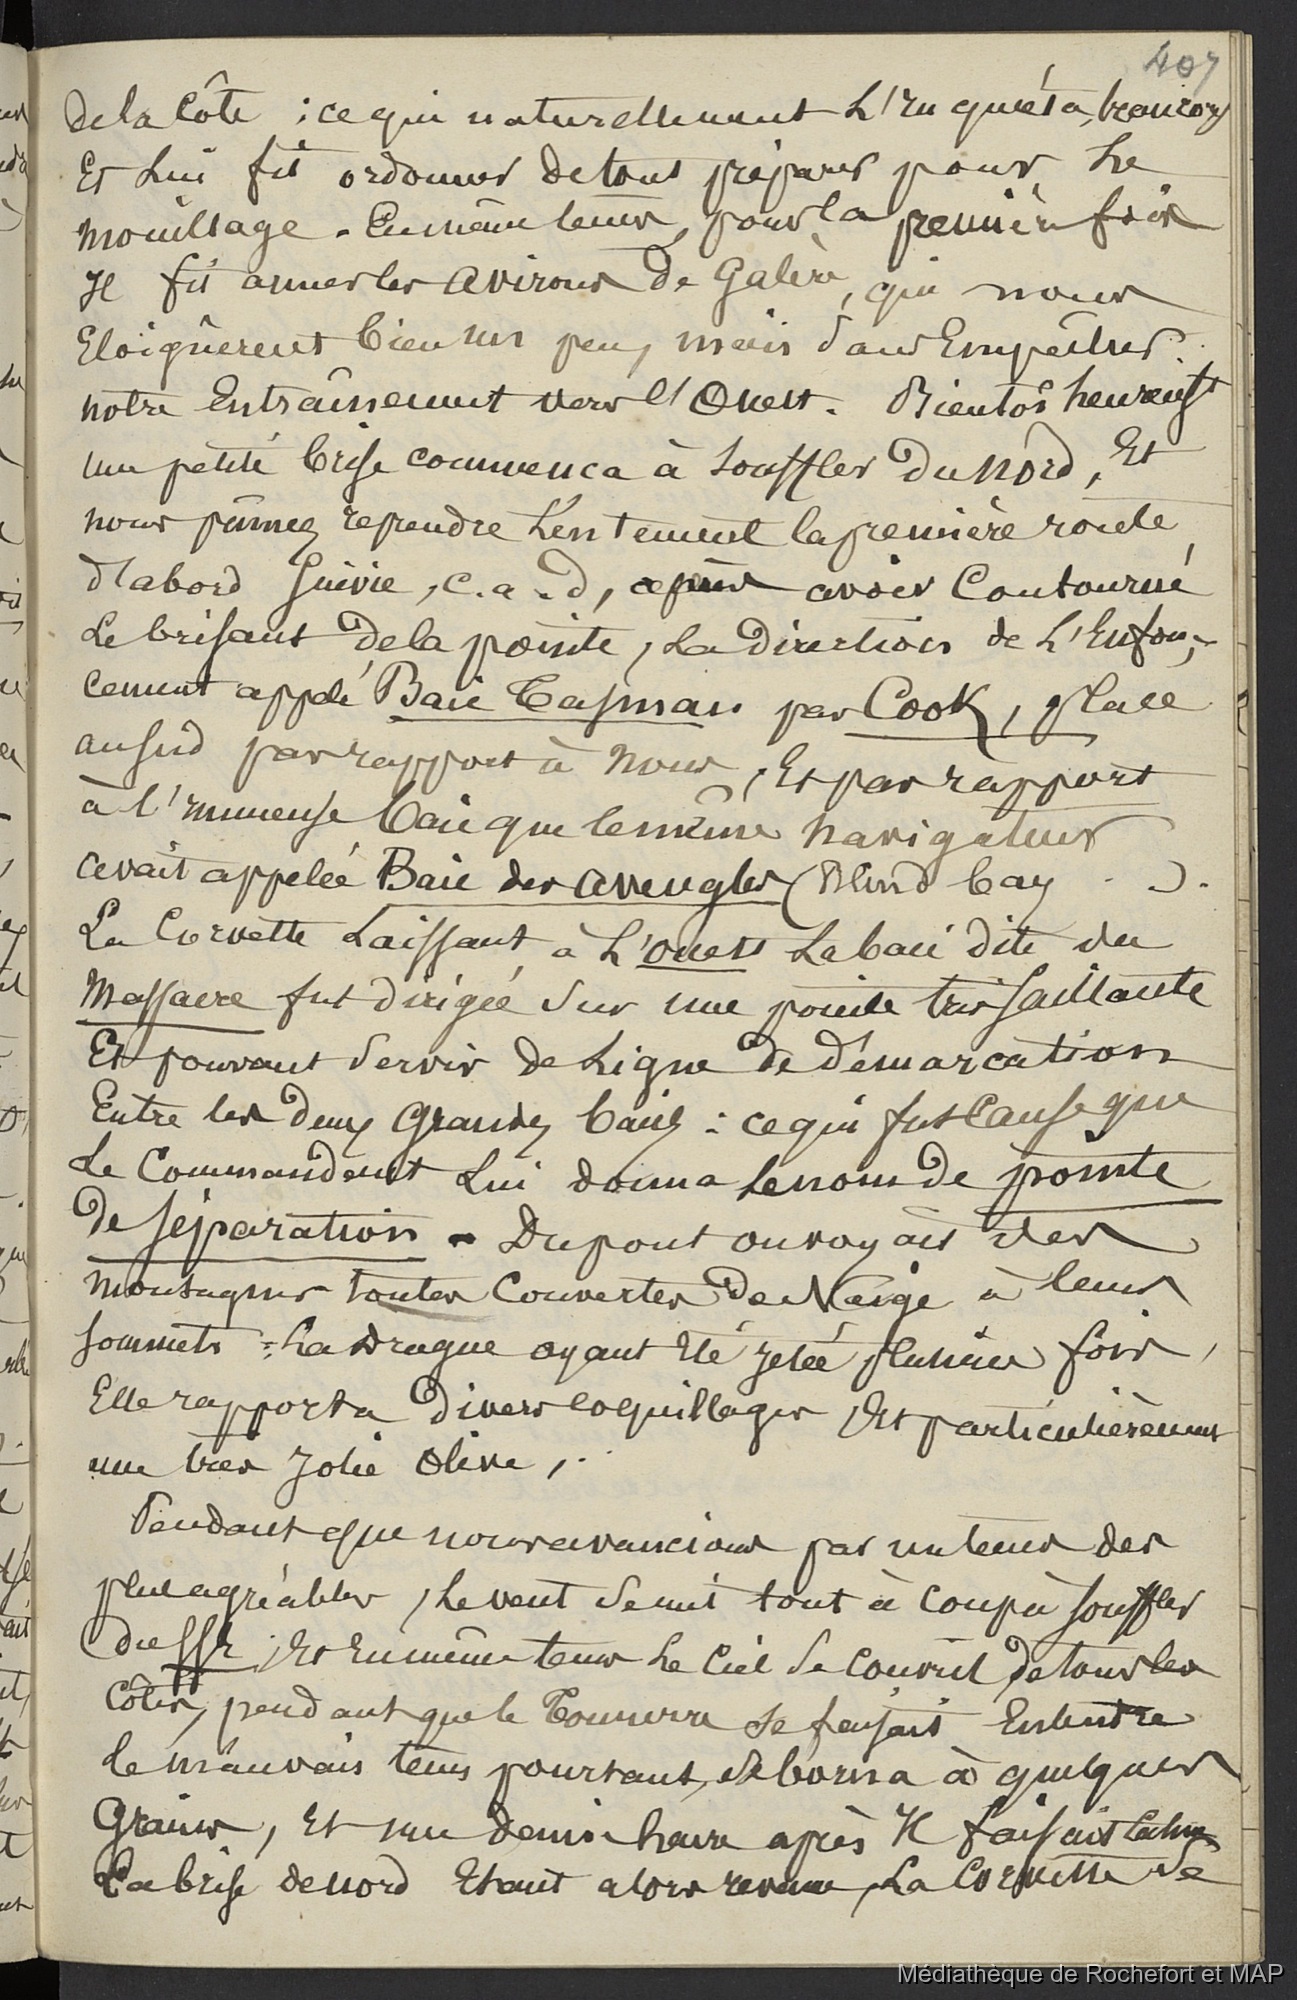 407
de la Côte : ce qui naturellement L'inquiéta, beaucoup
Et Lui fit ordonner de tout préparer pour Le
mouillage. En même tems, pour la première fois
Il fit armer les avirons de Galère, qui nous
Eloignèrent bien un peu, mais sans Empêcher
notre Entraînement vers l'Ouest. Bientôt heureust
une petite brise commenca à souffler du nord, Et
nous pûmes reprendre Lentement la première route
d'abord suivie, c.a.d, après avoir Contourné
Le brisant de la pointe, La direction de L'Enfon-
cement appelé Baie Tasman par Cook, placé
au sud par rapport à nous, Et par rapport
à l'immense baie que le même navigateur
avait appelée Baie des aveugles (Blind bay ).
La Corvette Laissant à L'ouest La baie dite du
Massacre fut dirigée sur une pointe très saillante
Et pouvant servir de Ligne de démarcation
Entre les deux Grandes baies : ce qui fut Cause que
Le Commandant Lui donna Le nom de pointe
de séparation - Du pont on voyait des
montagnes toutes Couvertes de Neige à leurs
sommets - La Drague ayant Eté jetée plusieurs fois,
Elle rapporta divers coquillages, Et particulièrement
une très jolie Olive,.
Pendant que nous avancions par un tems des
plus agréables, Le vent se mit tout à coup à souffler
du SSE, Et En même tems Le Ciel se couvrit de tous les
côtés, pendant que le Tonnerre se faisait Entendre
le mauvais tems pourtant, se borna à quelques
Grains, Et une demie heure après Il faisait calme
La brise de nord Etant alors revenue, La Corvette se
Médiathèque de Rochefort et MAP